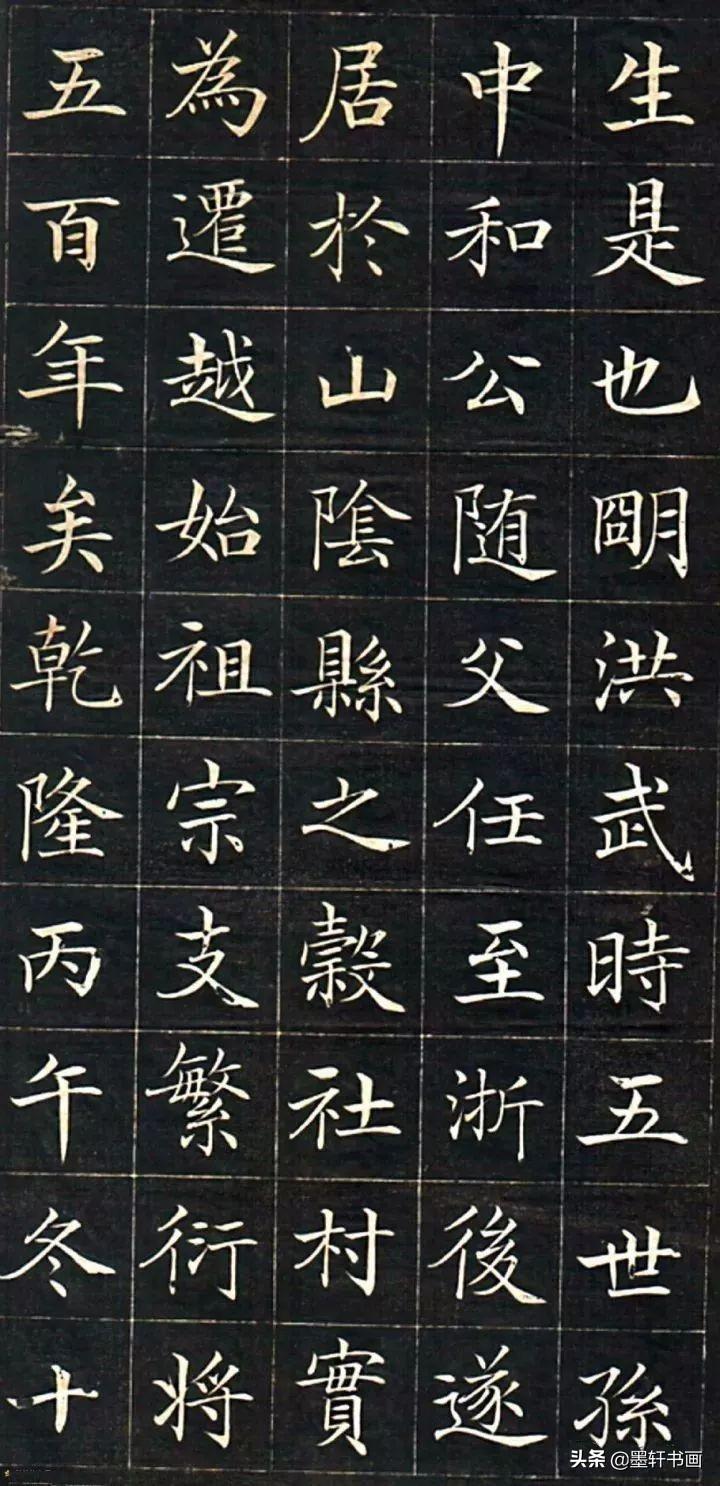 生是也朙洪武時五世孫
中和公随父任至浙後遂
居於山陰縣之穀社村實
為遷越始祖宗支繁衍将
五百年矣乾隆丙午冬十
头条@墨轩书画